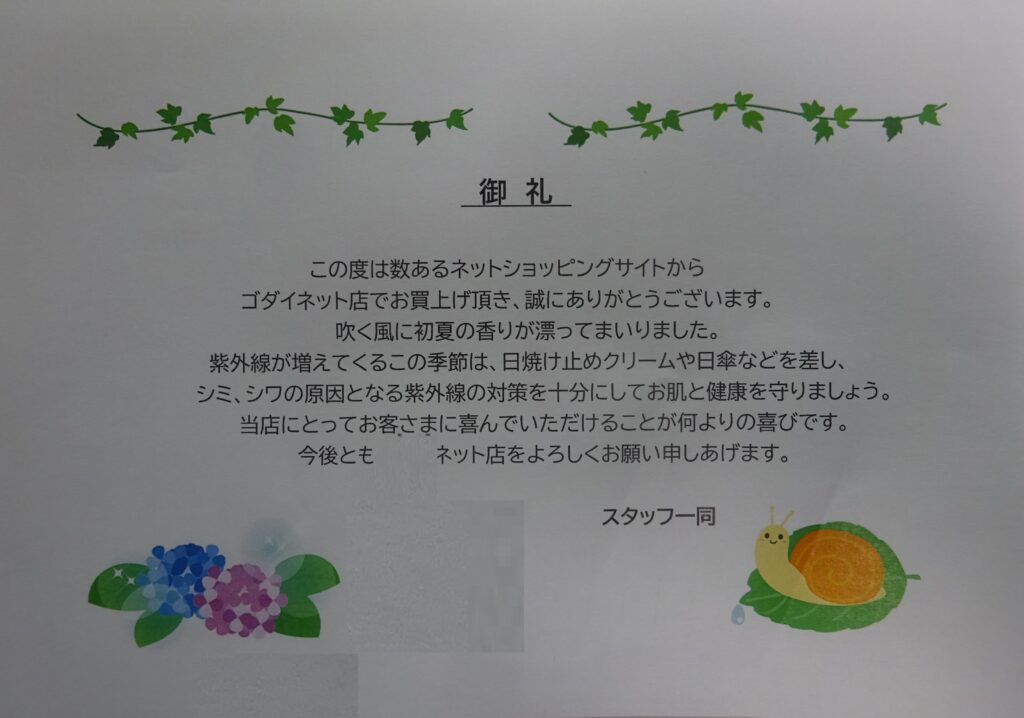 御 礼
この度は数あるネットショッピングサイトから
ゴダイネット店でお買上げ頂き、誠にありがとうございます。
吹く風に初夏の香りが漂ってまいりました。
紫外線が増えてくるこの季節は、日焼け止めクリームや日傘などを差し、
シミ、シワの原因となる紫外線の対策を十分にしてお肌と健康を守りましょう。
当店にとってお客さまに喜んでいただけることが何よりの喜びです。
今後とも ネット店をよろしくお願い申しあげます。
スタッフ一同